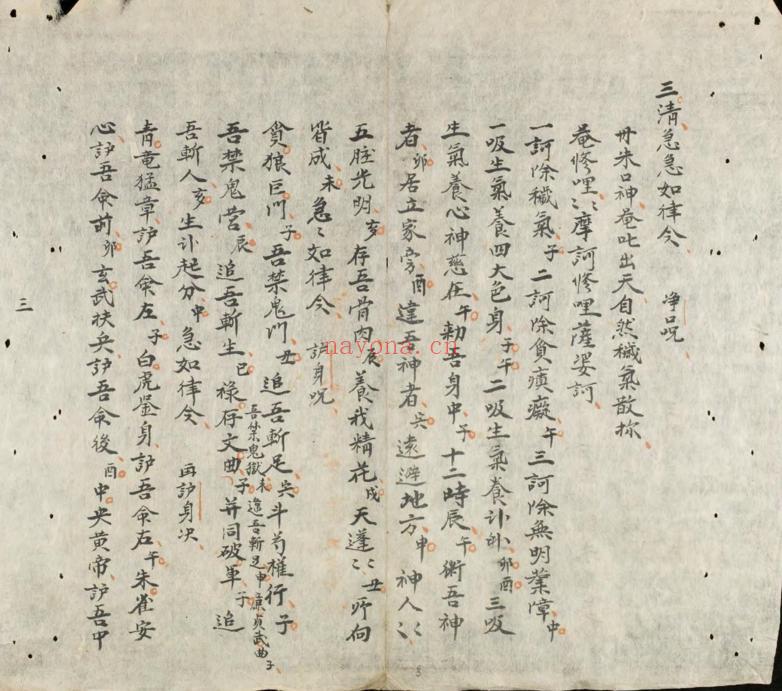 三清急急如律令 净口呪
丹朱口神菴吒出天自然穢氣散 
菴修哩〻摩訶修哩薩婆訶
一訶除穢氣子二訶除貪瞋癡午三訶除無明業障中
一吸生氣養四大色身子午二吸生氣養 卯酉三吸
生氣養心神慈在午勑吾身中子十二時辰午術吾神
者卯居立家旁酉違吾神者 遠避地方申神人〻
五脏光明亥存吾骨肉辰養我精花戌天蓬〻丑所向
皆成未急〻如律令 護身呪
貪狼巨門子吾禁鬼門丑追吾斬足 斗芍權行子
吾禁鬼獄未追吾斬足申廉貞武曲子
吾禁鬼营辰追吾斬生巳禄存文曲子并同破軍子追
吾斬人亥生 起分申急如律令 再护身决
青竜猛章护吾命左子白虎 身护吾命右午朱雀安
心护吾命前卯玄武扶兵护吾命後酉中央黄帝护吾中
三
nayona.cn
3